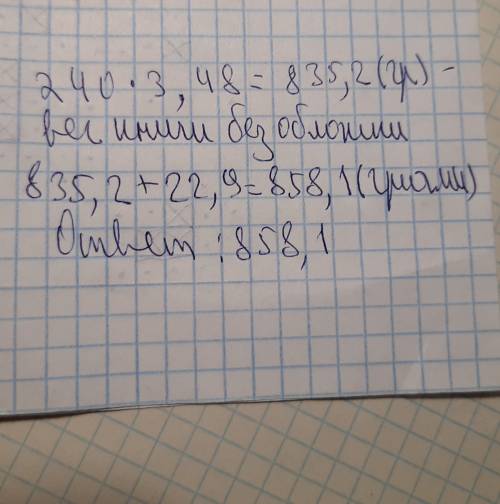 240 · 3,48 = 835,2 (гр) -
вес книги без обложки
835,2 + 22,9 = 858,1 (грамм)
Ответ: 858,1